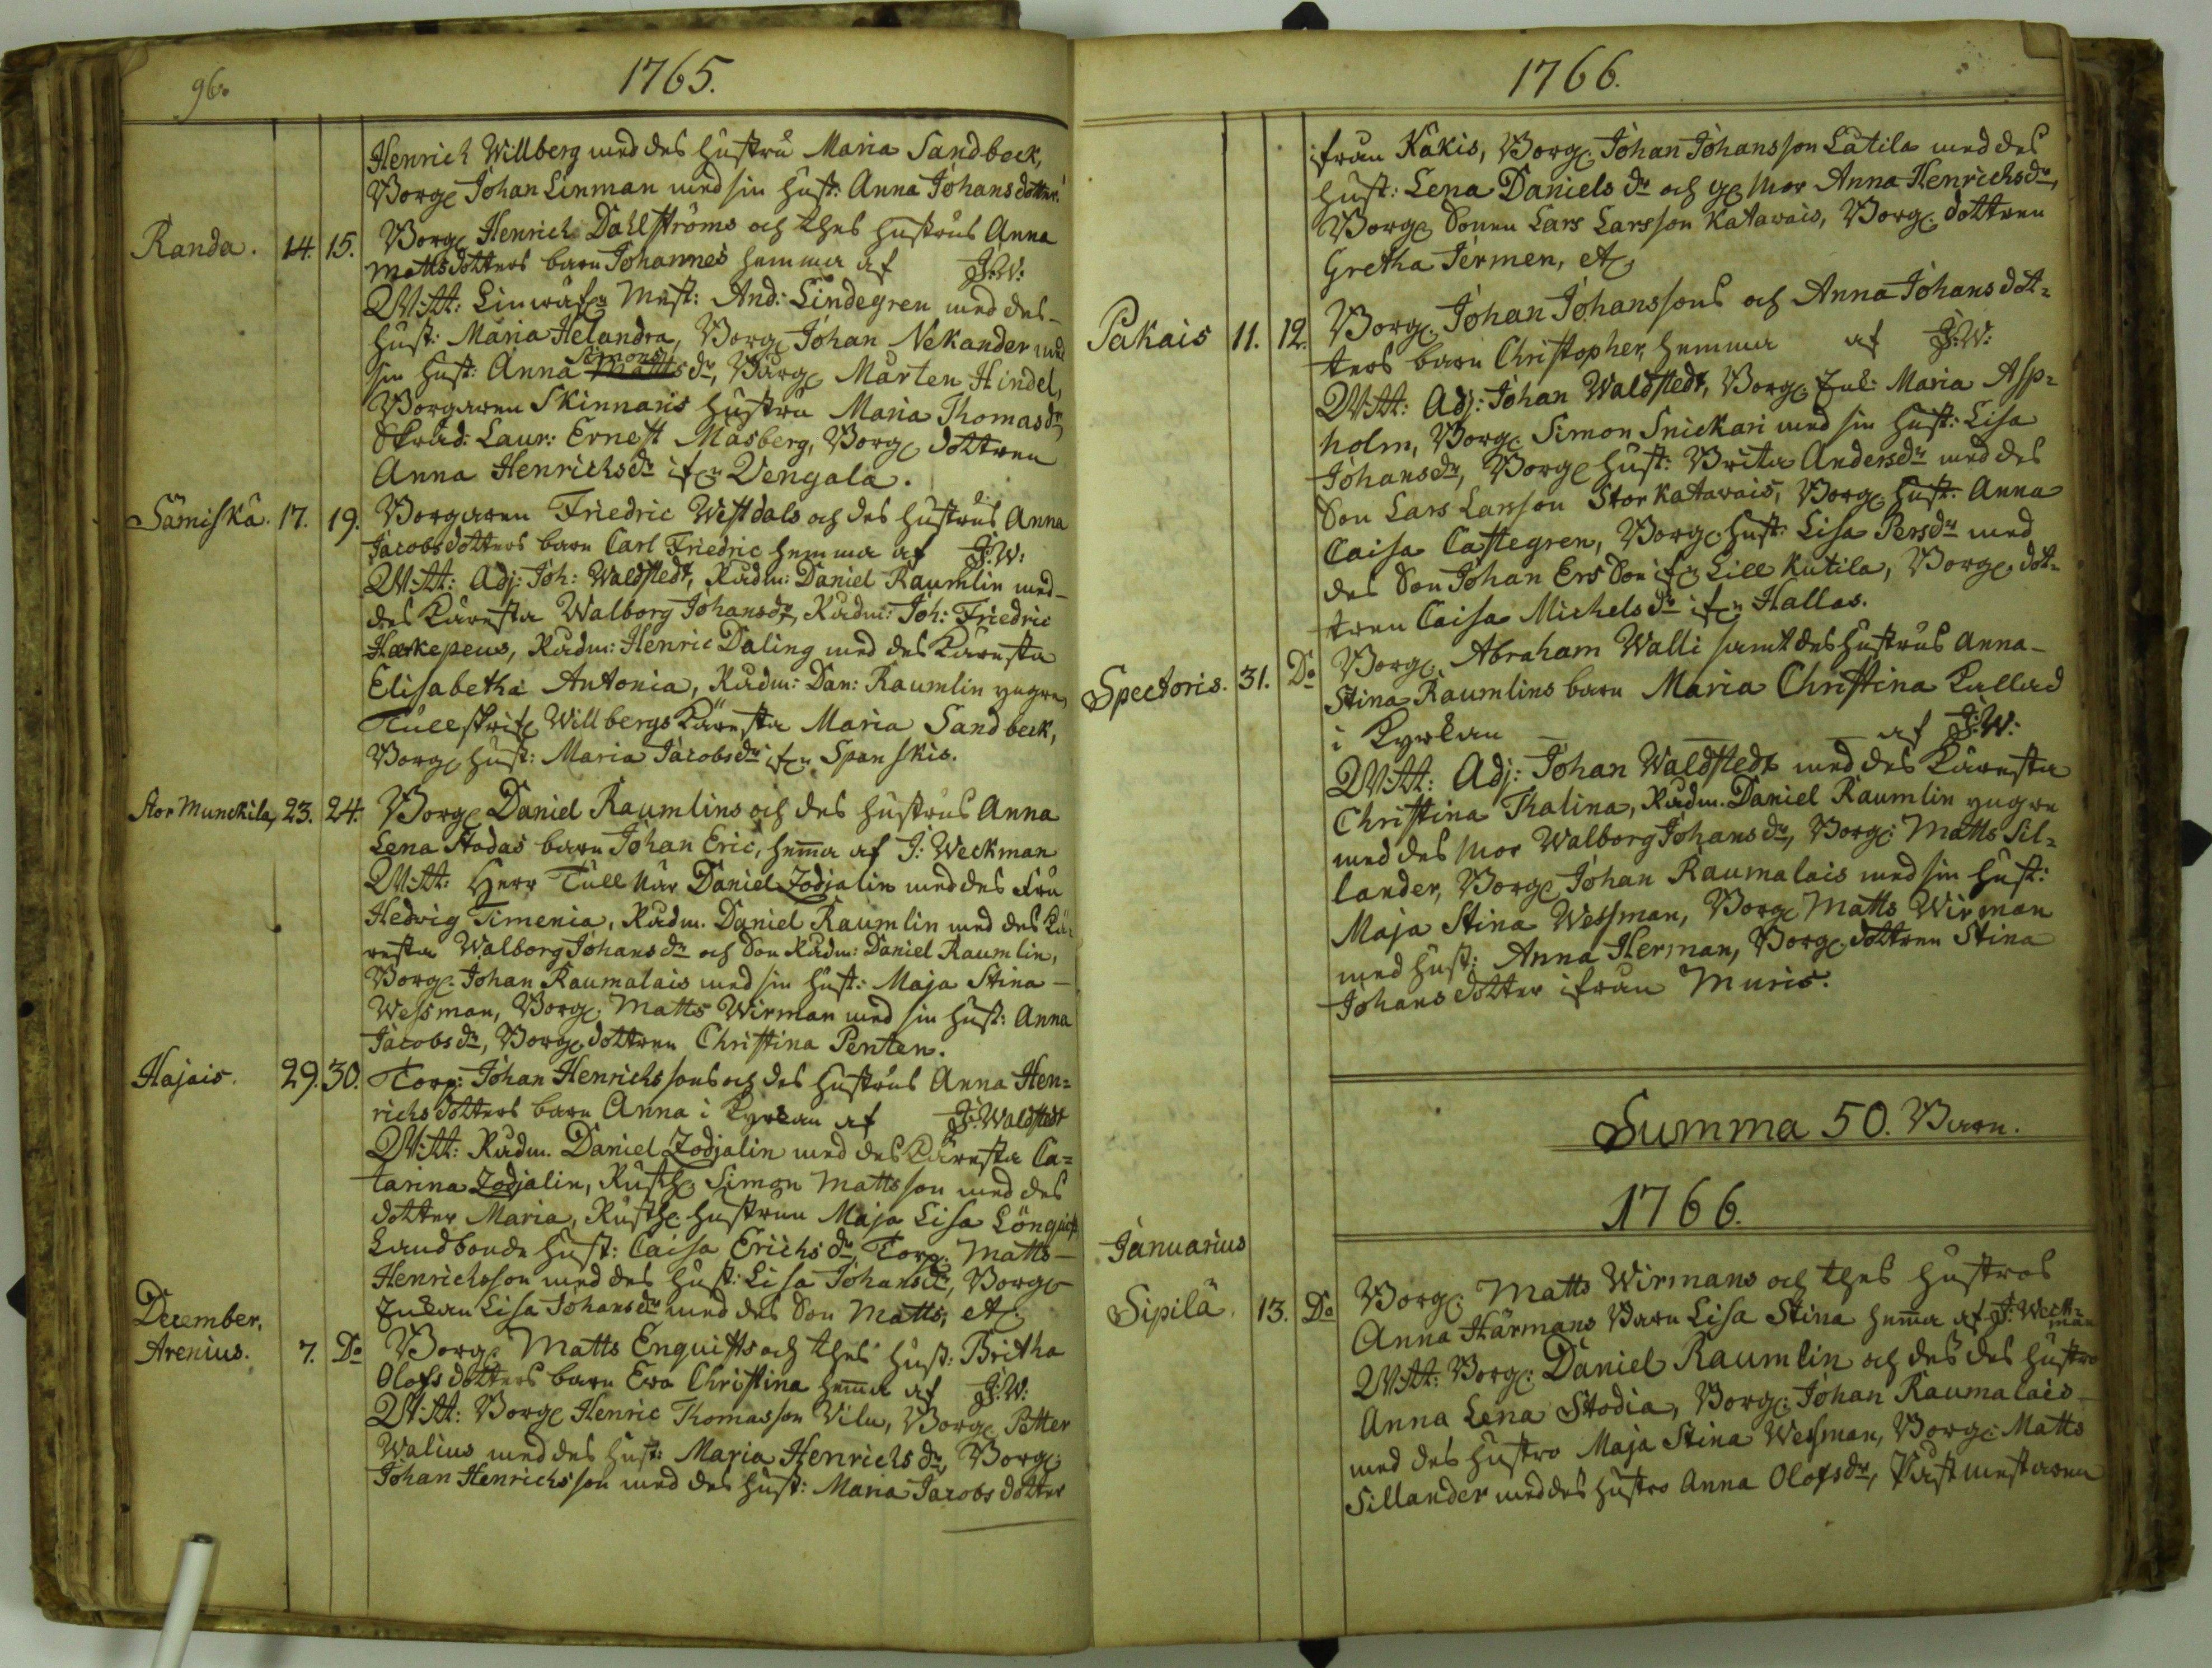 96.
1765.
Henrich Willberg med des hustru Maria Sandbeck,
Borg. Johan Linman med sin hust: Anna Johansdotter.
Randa. 14. 15. Borg. Henrich Dahlströms och thes hustrus Anna
Mattsdotters barn Johannes hemma af J:W:
Witt: Linwäf. Mäst: And: Lindegren med des
hust: Maria Helandra, Borg. Johan Nekander med
sin hust: Anna Simonsdr, Borg. Mårten Hindel,
Borgaren Skinnaris hustru Maria Thomasdr,
Skräd: Laur: Ernest Masberg, Borg. dottren
Anna Henrichsdr ifrn Vengala.
Sämiskä. 17. 19. Borgaren Friedric Westdals och des hustrus Anna
Jacobsdotters barn Carl Friedric hemma af J:W:
Witt: Adj: Joh: Waldstedt, Rådm: Daniel Raumlin med
des Käresta Walborg Johansdr, Rådm: Joh: Friedric
Harkepeus, Rådm: Henric Daling med des Käresta
Elisabetha Antonia, Rådm: Dan: Raumlin yngre,
Tullskrif. Willbergs Käresta Maria Sandbeck,
Borg. hust: Maria Jacobsdr ifrn Spanskis.
Stor Munckila, 23. 24. Borg. Daniel Raumlins och des hustrus Anna
Lena Stodas barn Johan Eric, hema af J: Weckman
Witt: Herr Tull När Daniel Zodjalin med des Fru
Hedvig Timenia, Rådm. Daniel Raumlin med des Kä-
resta Walborg Johansdr och Son Rådm: Daniel Raumlin,
Borg. Johan Raumalais med sin hust: Maja Stina
Wessman, Borg. Matts Wirman med sin hust: Anna
Jacobsdr, Borg. dottren Christina Penten.
Hajais. 29. 30. Torp: Johan Henrichssons och des hustrus Anna Hen=
richsdotters barn Anna i Kyrkan af J:Waldstedt
Witt: Rådm. Daniel Zodjalin med des Käresta Ca=
tarina Zodjalin, Rusth. Simon Mattsson med des
dotter Maria, Rusth. hustrun Maja Lisa Lönquist,
Landbonde hust: Caisa Erichsdr, Torp. Matts
Henrichsson med des hust: Lisa Johansdr, Borg.
Enkan Lisa Johansdr med des Son Matts, etc.
December.
Arenius. 7. Do Borg. Matts Enquists och thes hust: Britha
Olofsdotters barn Eva Christina hema af J:W:
Witt: Borg. Henric Thomasson Vilu, Borg. Petter
Walius med des hust: Maria Henrichsdr, Borg.
Johan Henrichsson med des hust: Maria Jacobsdotter
1766.
ifrån Kakis, Borg. Johan Johansson Latila med des
hust: Lena Danielsdr och Mor Anna Henrichsdr,
Borg. Sonen Lars Larsson Katawais, Borg. dottren
Gretha Jermen, etc.
Pakais 11. 12. Borg. Johan Johanssons och Anna Johansdot=
ters barn Christopher, hemma af J:W:
Witt: Adj: Johan Waldstedt, Borg. Enk: Maria Asp=
holm, Borg. Simon Snickari med sin hust: Lisa
Johansdr, Borg. hust: Brita Andersdr med des
Son Lars Larsson Stor Katawais, Borg. hust: Anna
Caisa Castegren, Borg. hust: Lisa Persdr med
des Son Johan Ers Son ifrn Lill Kutila, Borg. dot=
tren Caisa Michelsdr ifrn Hallas.
Spectoris. 31. Do Borg. Abraham Walli samt des hustrus Anna
Stina Raumlins barn Maria Christina Kallad
i Kyrkan — — af J:W:
Witt: Adj: Johan Waldstedt med des Käresta
Christina Thalina, Rådm. Daniel Raumlin yngre
med des Mor Walborg Johansdr, Borg. Matts Sil=
lander, Borg. Johan Raumalais med sin hust:
Maja Stina Wessman, Borg. Matts Wirman
med hust: Anna Herman, Borg. dottren Stina
Johansdotter ifrån Muris.
Summa 50. Barn.
1766.
Januarius
Sipilä. 13. Do Borg. Matts Wirmans och thes hustros
Anna Härmans Barn Lisa Stina hema af J: Weck=
man
Witt: Borg: Daniel Raumlin och des des hustro
Anna Lena Stodia, Borg: Johan Raumalais
med des hustro Maja Stina Wessman, Borg: Matts
Sillander med des hustro Anna Olofsdr, Pastmestaren